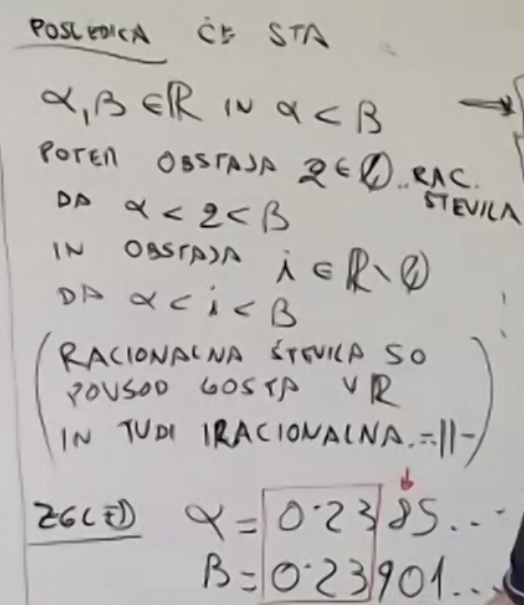 POSLEDICA ČE STA
α, β ∈ ℝ IN α < β
POTEM OBSTAJA q ∈ ℚ .. RAC. ŠTEVILA
DA α < q < β
IN OBSTAJA i ∈ ℝ \ ℚ
DA α < i < β
(RACIONALNA ŠTEVILA SO
POVSOD GOSTA V ℝ
IN TUDI IRACIONALNA. =||-)
ZGLED α = 0.2385...
β = 0.23901...